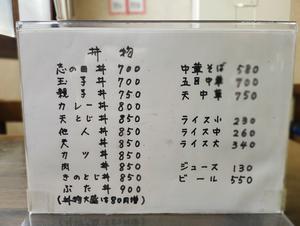 丼物
志の田丼 700
玉子丼 700
親子丼 750
カレー丼 800
天とじ丼 850
他人丼 850
天丼 850
カツ丼 850
肉丼 850
きのとじ丼 850
ぶた丼 900
(丼物大盛は80円増)
中華そば 580
五目中華 700
天中華 750
ライス小 230
ライス中 260
ライス大 340
ジュース 130
ビール 550